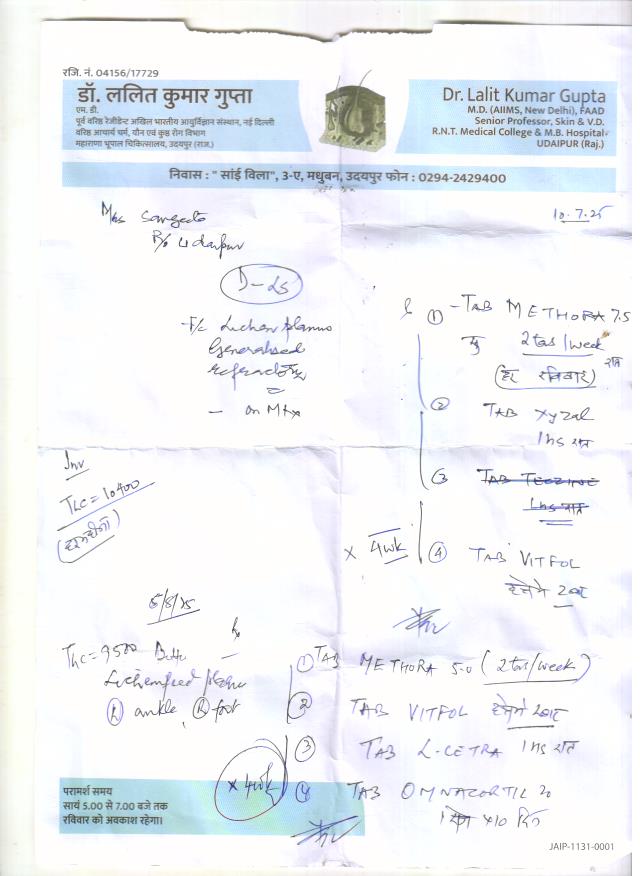 रजि. नं. 04156/17729
डॉ. ललित कुमार गुप्ता
एम. डी.
पूर्व वरिष्ठ रेजीडेन्ट अखिल भारतीय आयुर्विज्ञान संस्थान, नई दिल्ली
वरिष्ठ आचार्य चर्म, यौन एवं कुष्ठ रोग विभाग
महाराणा भूपाल चिकित्सालय, उदयपुर (राज.)
Dr. Lalit Kumar Gupta
M.D. (AIIMS, New Delhi), FAAD
Senior Professor, Skin & V.D.
R.N.T. Medical College & M.B. Hospital
UDAIPUR (Raj.)
निवास : " सांई विला", 3-ए, मधुबन, उदयपुर फोन : 0294-2429400
10.7.25
Mrs Sangeeta
R/o Udaipur
D-25
F/c Lichen planus
Generalised
refractory
- on Mtx
Inv
TLC = 10400
① - TAB METHORA 7.5
2 tabs/week
(हर रविवार) रात
② TAB Xyzal
1 hs रात
③ TAB TECZINE
1 hs रात
④ TAB VITFOL
हफ्ते में 2 बार
× 4wk
5/8/25
TLC = 9500 Better
Lichenified plaque
(L) ankle, (R) foot
Rx
① TAB METHORA 5.0 (2 tabs/week)
② TAB VITFOL हफ्ते में 2 बार
③ TAB L-CETRA 1 hs रात
④ TAB OMNACORTIL 20
× 10 दिन
× 4wk
परामर्श समय
सायं 5.00 से 7.00 बजे तक
रविवार को अवकाश रहेगा।
JAIP-1131-0001